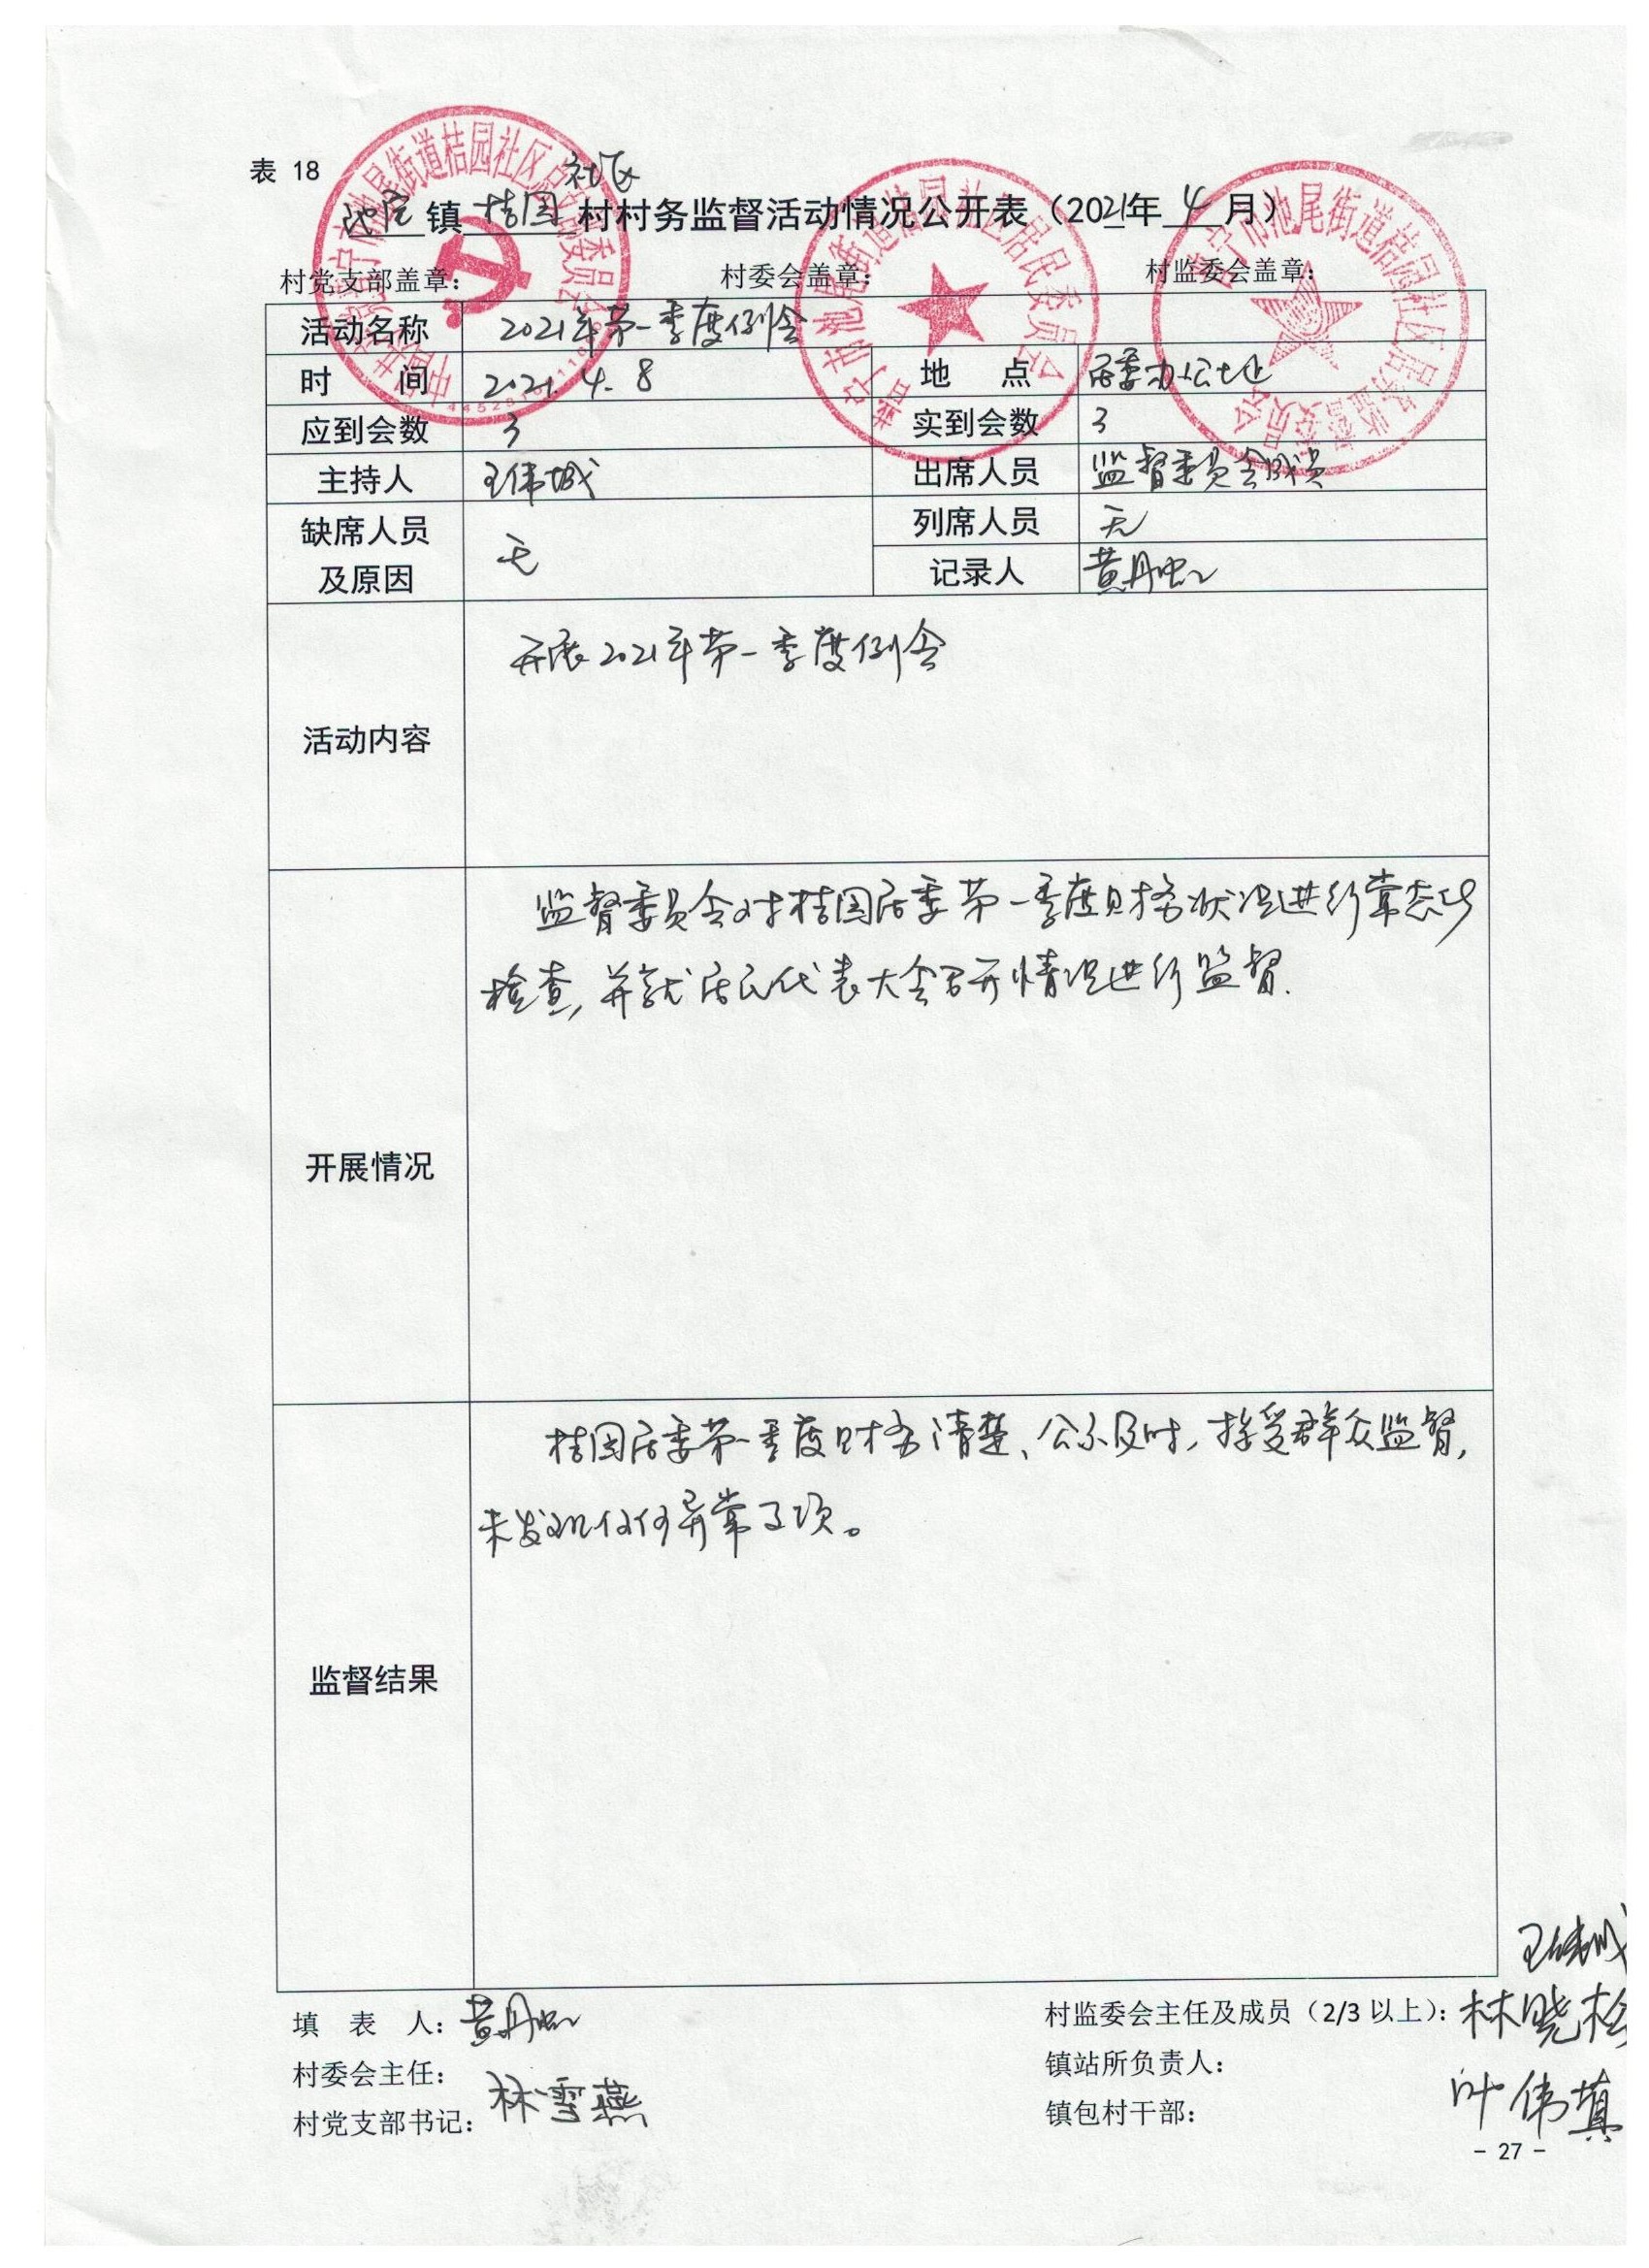 表 18
社区
池尾镇桔园村村务监督活动情况公开表（2021年4月）
村党支部盖章： 村委会盖章： 村监委会盖章：
活动名称 2021年第一季度例会
时 间 2021.4.8 地 点 居委办公址
应到会数 3 实到会数 3
主持人 王伟城 出席人员 监督委员会成员
缺席人员及原因 无 列席人员 无
记录人 黄丹虹
活动内容 开展2021年第一季度例会
监督委员会对桔园居委第一季度财务状况进行常态化
检查,并就居民代表大会召开情况进行监督.
开展情况
桔园居委第一季度财务清楚、公示及时,接受群众监督,
未发现任何异常事项。
监督结果
王伟城
填 表 人：黄丹虹 村监委会主任及成员（2/3 以上）：林晓桧
村委会主任： 镇站所负责人：
村党支部书记：林雪燕 镇包村干部： 叶伟填
- 27 -
普宁市池尾街道桔园社区居民委员会